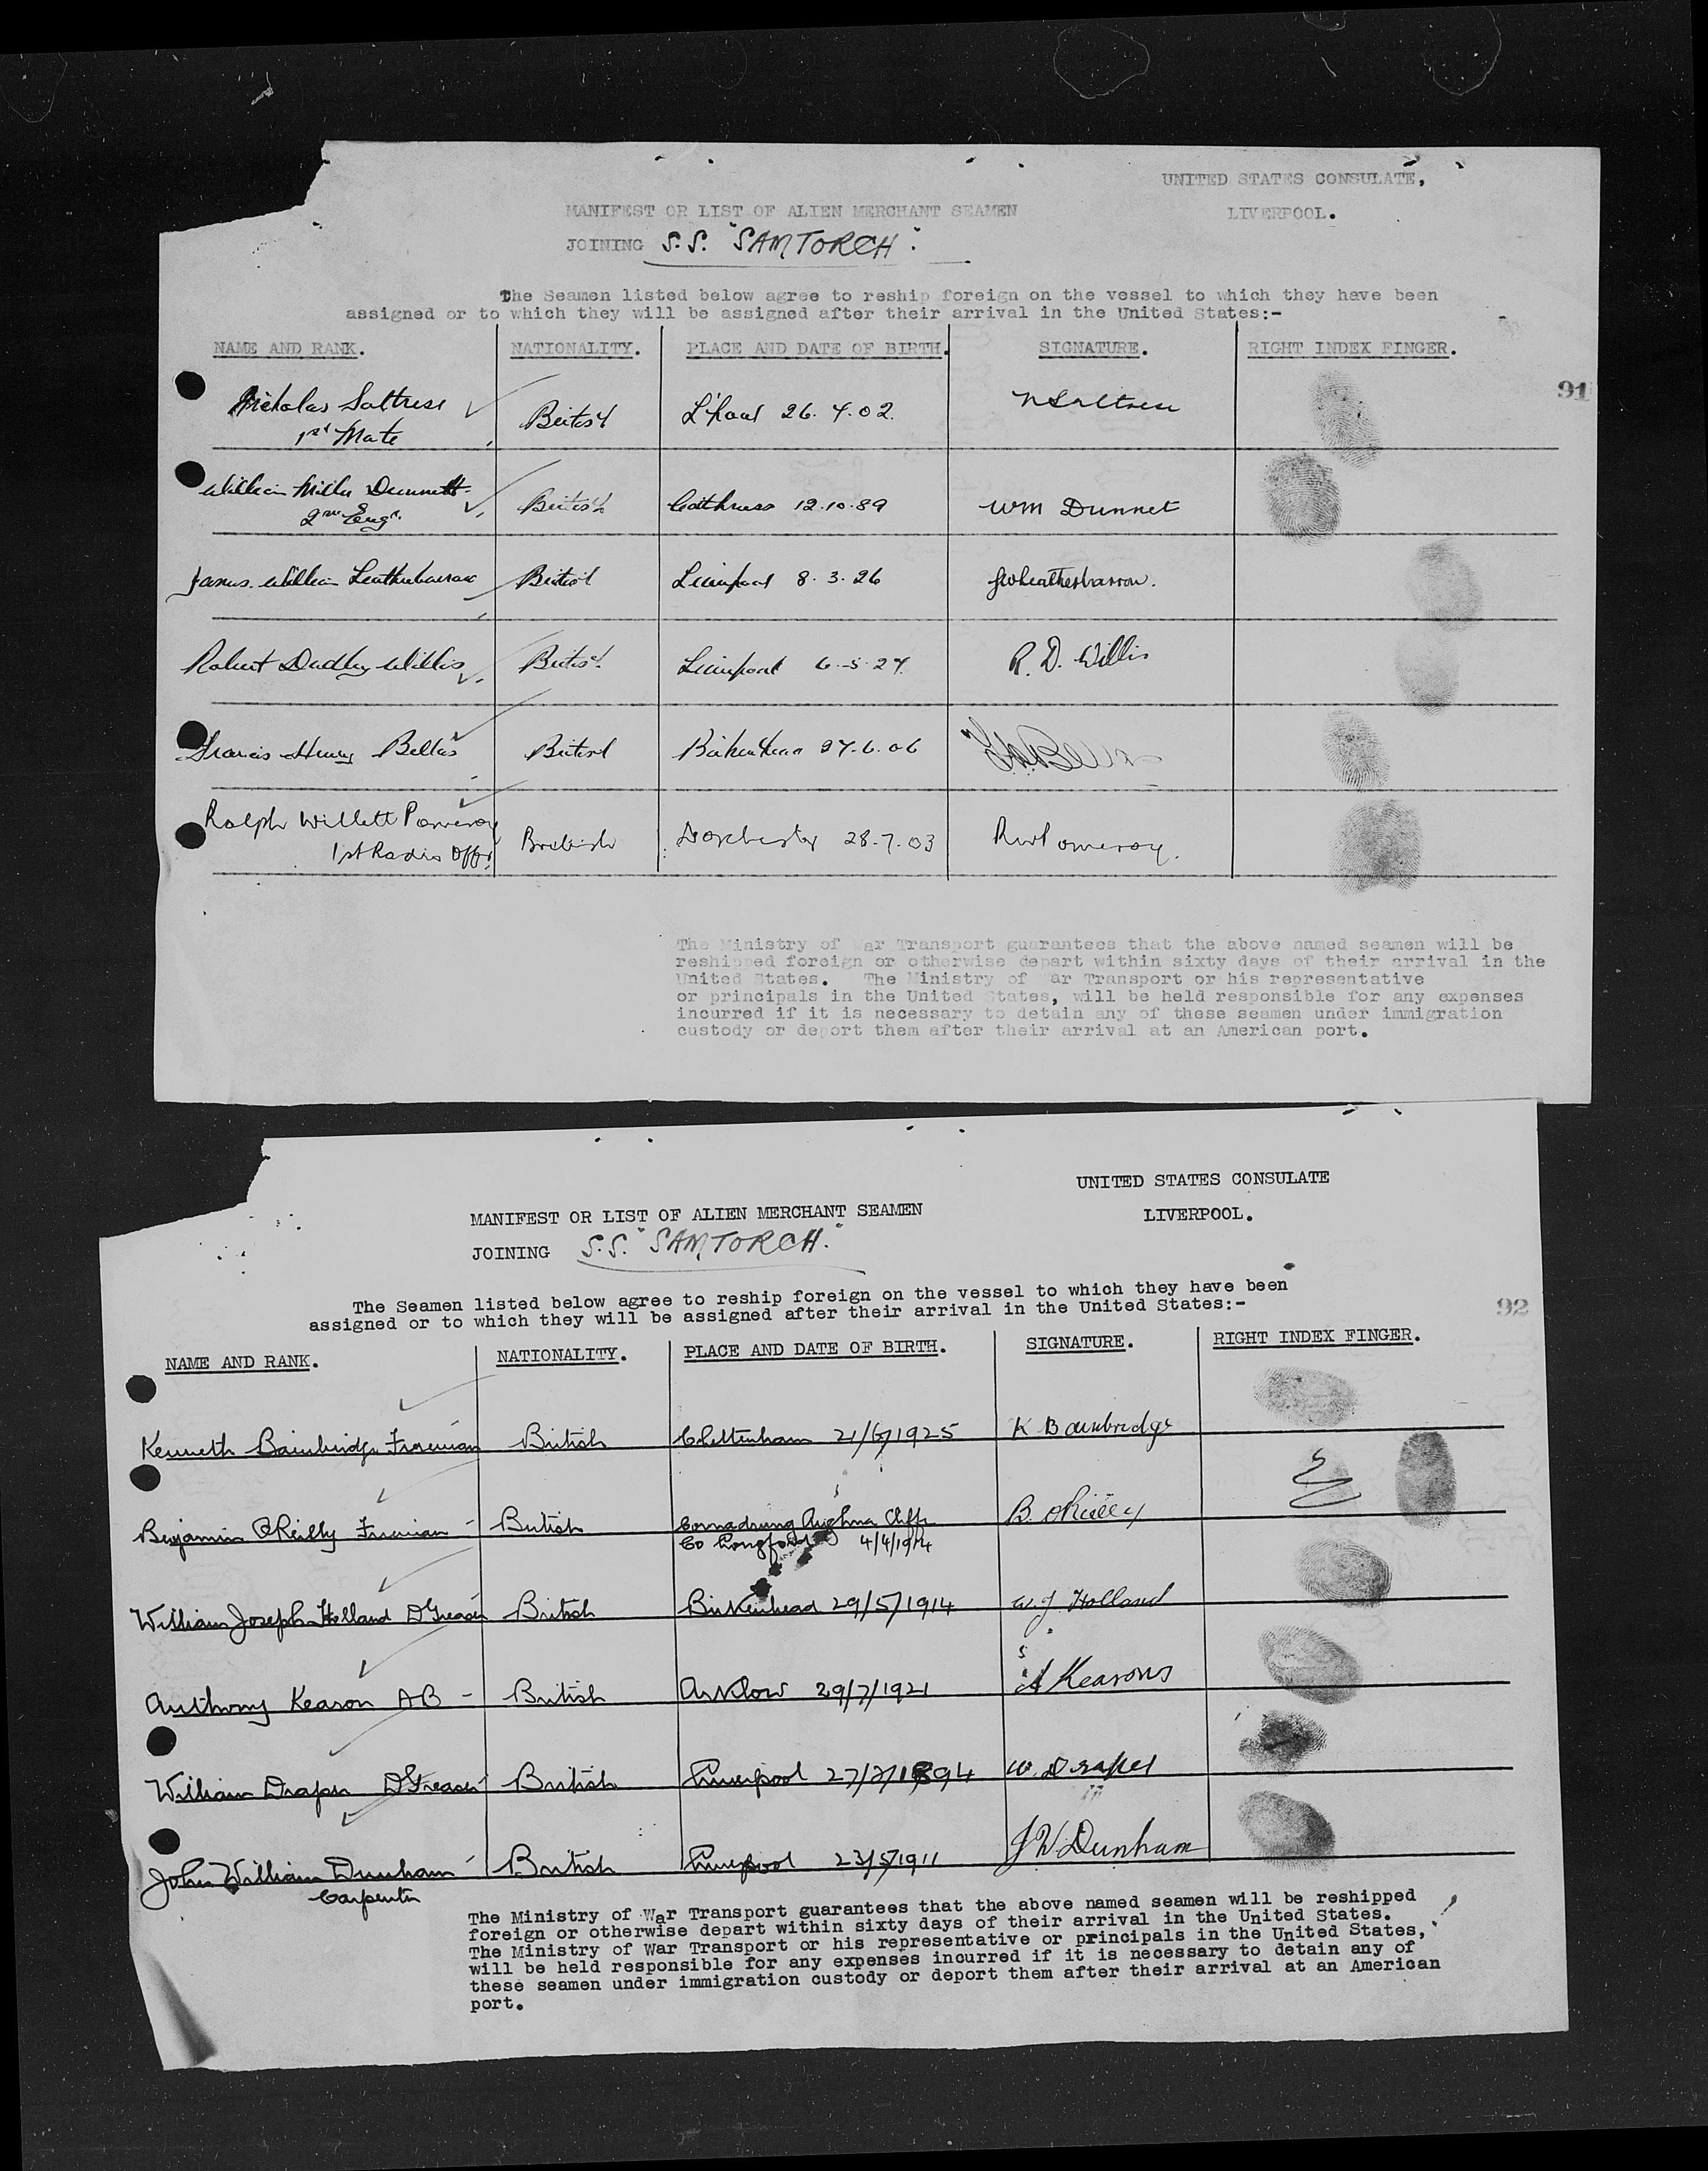 UNITED STATES CONSULATE,
LIVERPOOL.
MANIFEST OR LIST OF ALIEN MERCHANT SEAMEN
JOINING S.S. "SAMTORCH".
The Seamen listed below agree to reship foreign on the vessel to which they have been
assigned or to which they will be assigned after their arrival in the United States:-
NAME AND RANK. NATIONALITY. PLACE AND DATE OF BIRTH. SIGNATURE. RIGHT INDEX FINGER.
91
Nicholas Saltrese British L'pool 26.4.02. N Saltrese
1st Mate
William Miller Dunnett British Caithness 12.10.89 Wm Dunnet
2nd Engr.
James William Leatherbarrow British Liverpool 8.3.26 JWLeatherbarrow.
Robert Dudley Willis British Liverpool 6.5.27. R. D. Willis
Francis Henry Bellis British Birkenhead 27.6.06
Ralph Willett Pomeroy British Dorchester 28.7.03 RWPomeroy.
1st Radio Offr.
The Ministry of War Transport guarantees that the above named seamen will be
reshipped foreign or otherwise depart within sixty days of their arrival in the
United States. The Ministry of War Transport or his representative
or principals in the United States, will be held responsible for any expenses
incurred if it is necessary to detain any of these seamen under immigration
custody or deport them after their arrival at an American port.
UNITED STATES CONSULATE
LIVERPOOL.
MANIFEST OR LIST OF ALIEN MERCHANT SEAMEN
JOINING S.S. "SAMTORCH."
The Seamen listed below agree to reship foreign on the vessel to which they have been
assigned or to which they will be assigned after their arrival in the United States:-
92
NAME AND RANK. NATIONALITY. PLACE AND DATE OF BIRTH. SIGNATURE. RIGHT INDEX FINGER.
Kenneth Bainbridge Fireman British Cheltenham 21/6/1925 K Bainbridge
Benjamin O'Reilly Fireman - British Cornadrung Aughna Cliffe B. O'Reilly
Co Longford 4/4/1914
William Joseph Holland D'Greaser British Birkenhead 29/5/1914 W. J. Holland
Anthony Kearon AB - British Arklow 29/7/1921 A Kearons
William Draper D'Greaser British Liverpool 27/7/1894 W. Draper
John William Dunham British Liverpool 23/5/1911 JW Dunham
Carpenter
The Ministry of War Transport guarantees that the above named seamen will be reshipped
foreign or otherwise depart within sixty days of their arrival in the United States.
The Ministry of War Transport or his representative or principals in the United States,
will be held responsible for any expenses incurred if it is necessary to detain any of
these seamen under immigration custody or deport them after their arrival at an American
port.